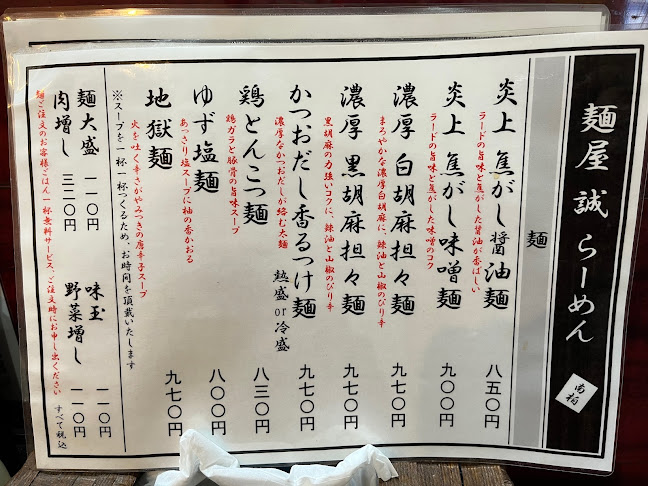 麺屋 誠 らーめん
南柏
麺
炎上 焦がし醤油麺 八五〇円
ラードの旨味と焦がした醤油が香ばしい
炎上 焦がし味噌麺 九〇〇円
ラードの旨味と焦がした味噌のコク
濃厚 白胡麻担々麺 九七〇円
まろやかな濃厚白胡麻に、辣油と山椒のぴり辛
濃厚 黒胡麻担々麺 九七〇円
黒胡麻の力強いコクに、辣油と山椒のぴり辛
かつおだし香るつけ麺 熱盛or冷盛 九七〇円
濃厚なかつおだしが絡む太麺
鶏とんこつ麺 八三〇円
鶏ガラと豚骨の旨味スープ
ゆず塩麺 八〇〇円
あっさり塩スープに柚の香かおる
地獄麺 九七〇円
火を吐く辛さがやみつきの唐辛子スープ
※スープを一杯一杯つくるため、お時間を頂戴いたします
麺大盛 一一〇円 味玉 一一〇円
肉増し 三三〇円 野菜増し 一一〇円
すべて税込
麺ご注文のお客様ごはん一杯無料サービス、ご注文時にお申し出ください